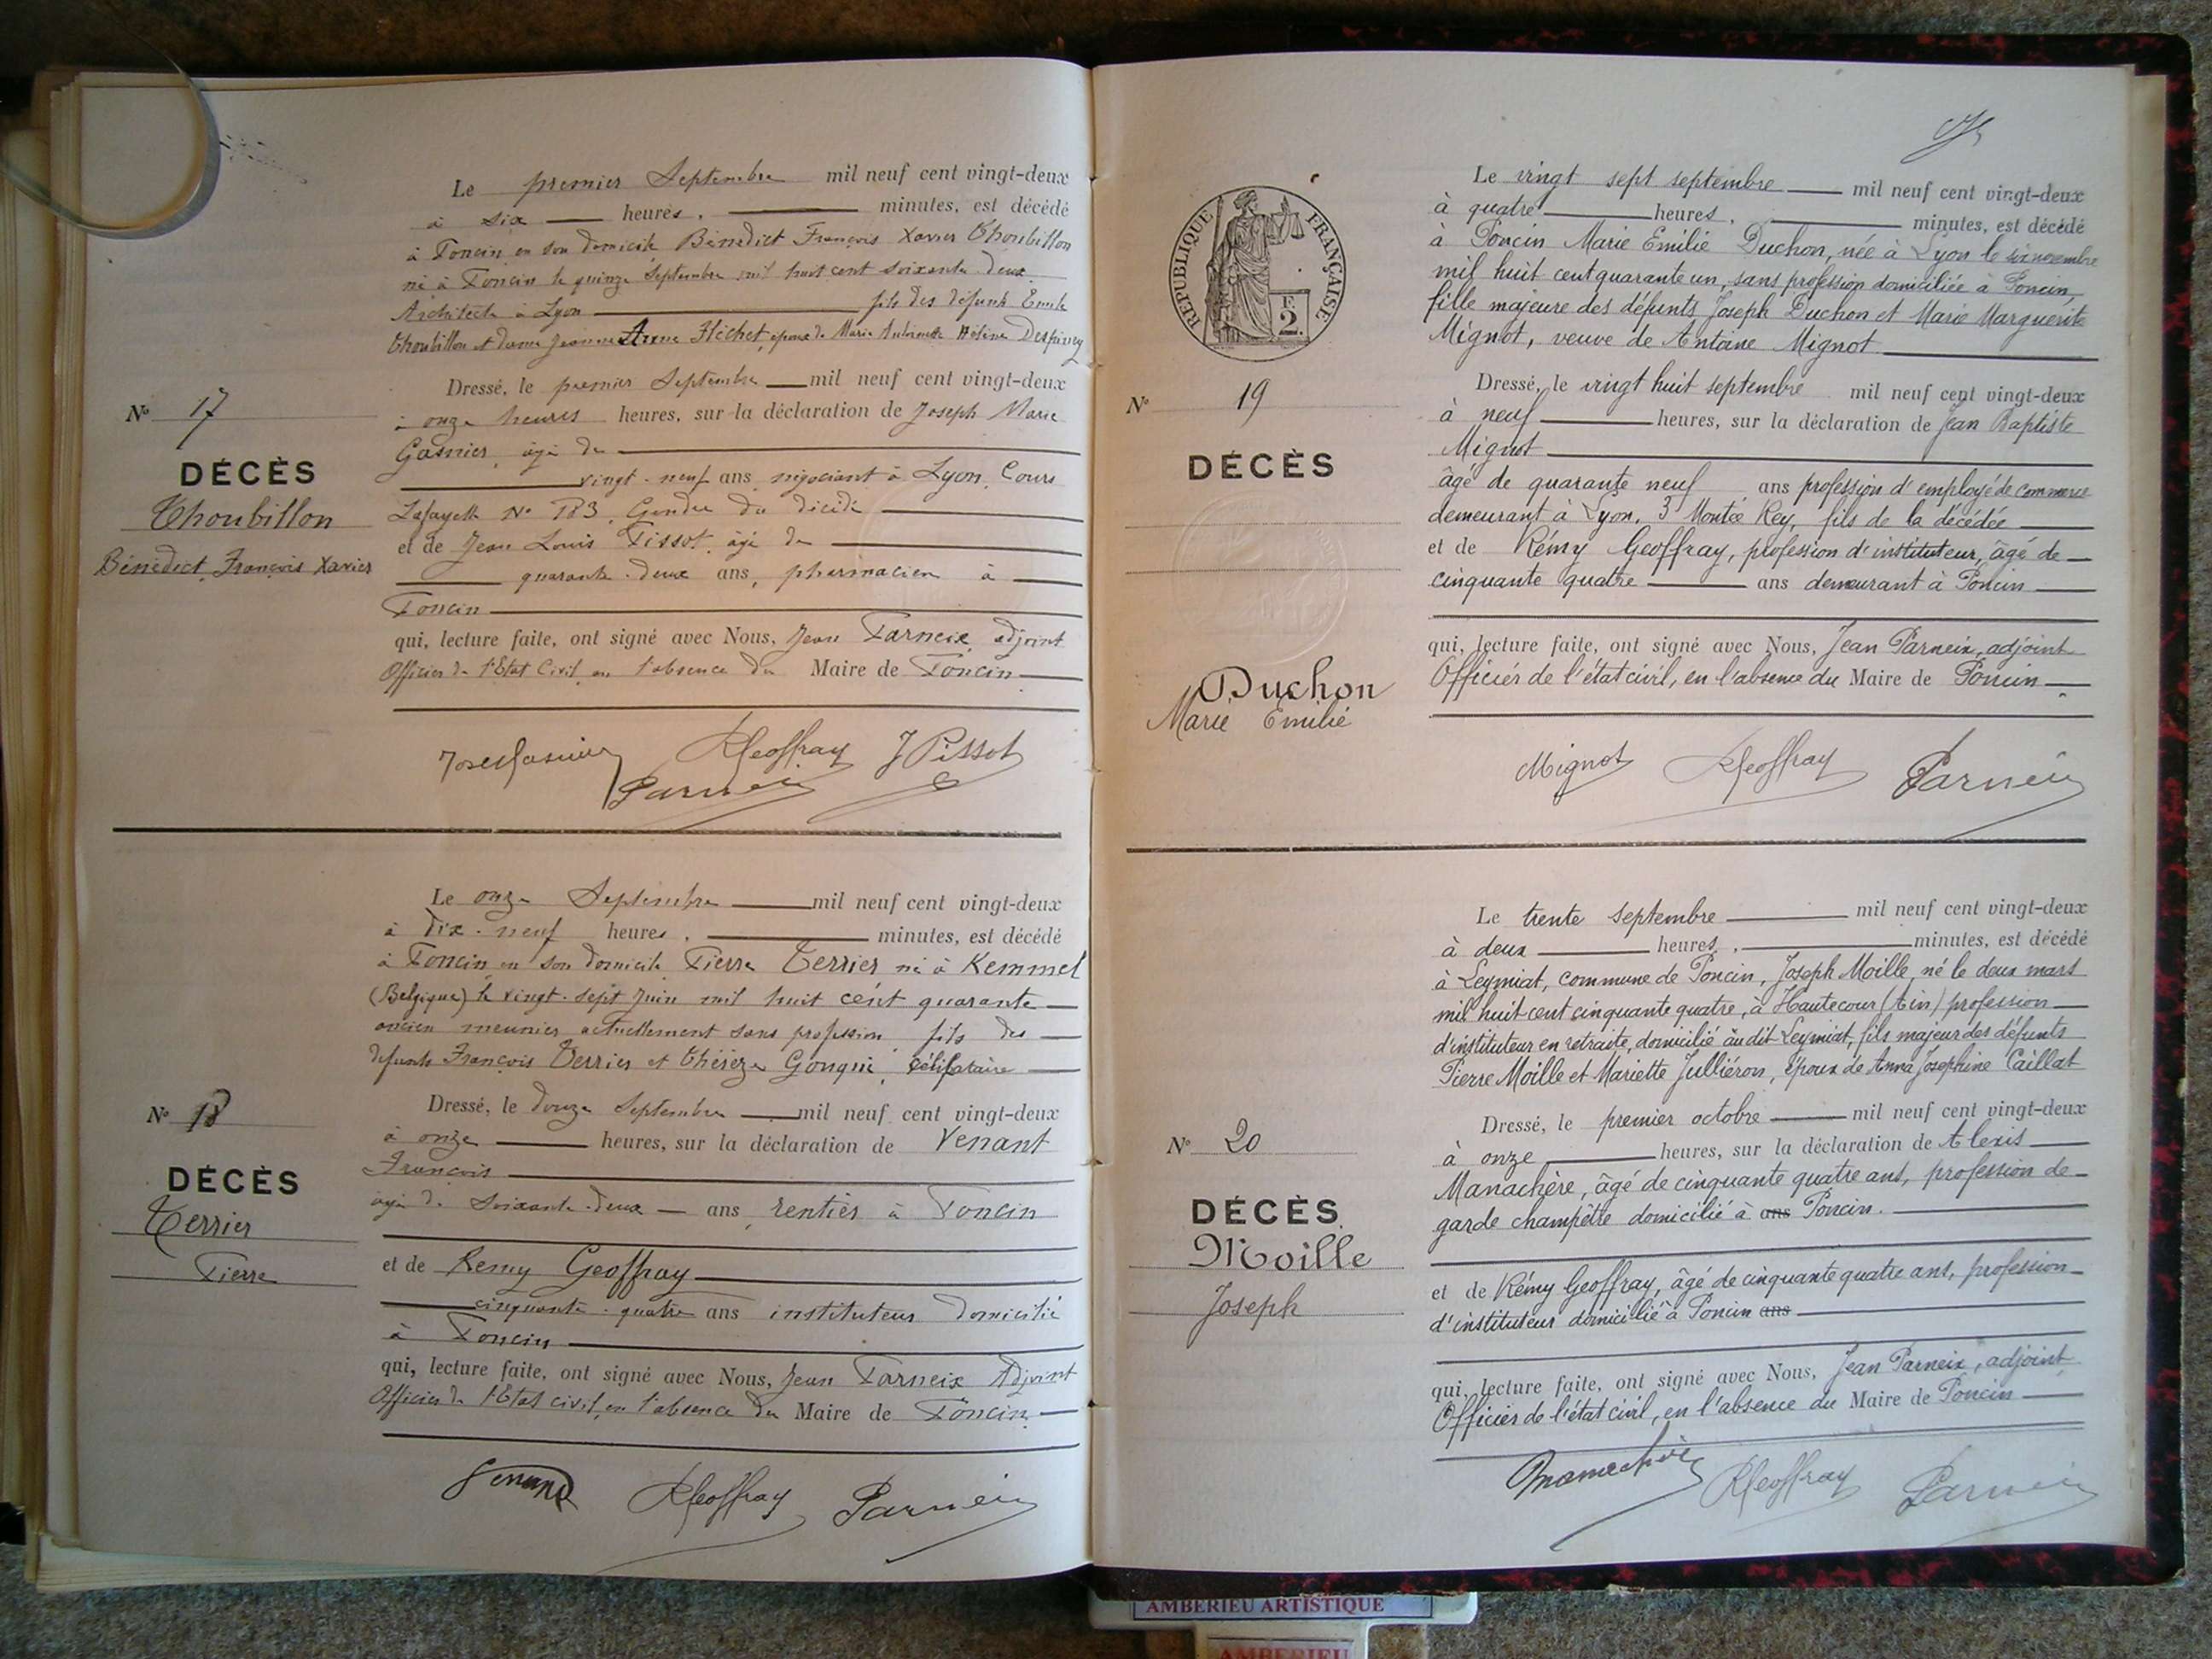 Le premier Septembre mil neuf cent vingt-deux
à six heures, minutes, est décédé
à Poncin en son domicile Bénédict François Xavier Thoubillon
né à Poncin le quinze Septembre mil huit cent soixante deux
Architecte à Lyon fils des défunts Emile
Thoubillon et dame Jeanne Anne Flichet, époux de Marie Antoinette Hélène Despiney
Dressé, le premier Septembre mil neuf cent vingt-deux
à onze heures heures, sur la déclaration de Joseph Marie
Gasnier, âgé de
vingt-neuf ans, négociant à Lyon, Cours
Lafayette N° 183, Gendre du décédé
et de Jean Louis Pissot, âgé de
quarante-deux ans, pharmacien à
Poncin
qui, lecture faite, ont signé avec Nous, Jean Parneix, adjoint
Officier de l'Etat Civil en l'absence du Maire de Poncin
N° 17
DÉCÈS
Thoubillon
Bénédict, François Xavier
RGeoffray J Pissot
Parneix
Le onze Septembre mil neuf cent vingt-deux
à dix-neuf heures, minutes, est décédé
à Poncin en son domicile Pierre Terrier né à Kemmel
(Belgique) le vingt-sept Juin mil huit cent quarante
ancien meunier actuellement sans profession, fils des
défunts François Terrier et Thérèze Gouguè, célibataire
Dressé, le douze Septembre mil neuf cent vingt-deux
à onze heures, sur la déclaration de Venant
François
âgé de soixante-deux ans, rentier à Poncin
et de Remy Geoffray
cinquante-quatre ans instituteur domicilié
à Poncin
qui, lecture faite, ont signé avec Nous, Jean Parneix Adjoint
Officier de l'Etat civil, en l'absence du Maire de Poncin
N° 18
DÉCÈS
Terrier
Pierre
RGeoffray Parneix
RÉPUBLIQUE FRANÇAISE
2 F.
Le vingt sept septembre mil neuf cent vingt-deux
à quatre heures, minutes, est décédé
à Poncin Marie Emilie Duchon, née à Lyon le six novembre
mil huit cent quarante un, sans profession domiciliée à Poncin,
fille majeure des défunts Joseph Duchon et Marie Marguerite
Mignot, veuve de Antoine Mignot
Dressé, le vingt huit septembre mil neuf cent vingt-deux
à neuf heures, sur la déclaration de Jean Baptiste
Mignot
âgé de quarante neuf ans profession d'employé de commerce
demeurant à Lyon, 3 Montée Rey, fils de la décédée
et de Rémy Geoffray, profession d'instituteur, âgé de
cinquante quatre ans demeurant à Poncin
qui, lecture faite, ont signé avec Nous, Jean Parneix, adjoint
Officier de l'état civil, en l'absence du Maire de Poncin
N° 19
DÉCÈS
Duchon
Marie Emilie
Mignot RGeoffray Parneix
Le trente septembre mil neuf cent vingt-deux
à deux heures, minutes, est décédé
à Leymiat, commune de Poncin, Joseph Moille, né le deux mars
mil huit cent cinquante quatre, à Hautecour (Ain) profession
d'instituteur en retraite, domicilié au dit Leymiat, fils majeur des défunts
Pierre Moille et Mariette Julliéron, époux de Anna Josephine Caillat
Dressé, le premier octobre mil neuf cent vingt-deux
à onze heures, sur la déclaration de Alexis
Manachère, âgé de cinquante quatre ans, profession de
garde champêtre domicilié à ans Poncin.
et de Rémy Geoffray, âgé de cinquante quatre ans, profession
d'instituteur domicilié à Poncin ans
qui, lecture faite, ont signé avec Nous, Jean Parneix, adjoint
Officier de l'état civil, en l'absence du Maire de Poncin
N° 20
DÉCÈS
Moille
Joseph
Manachère RGeoffray Parneix
AMBERIEU ARTISTIQUE
AMBERIEU